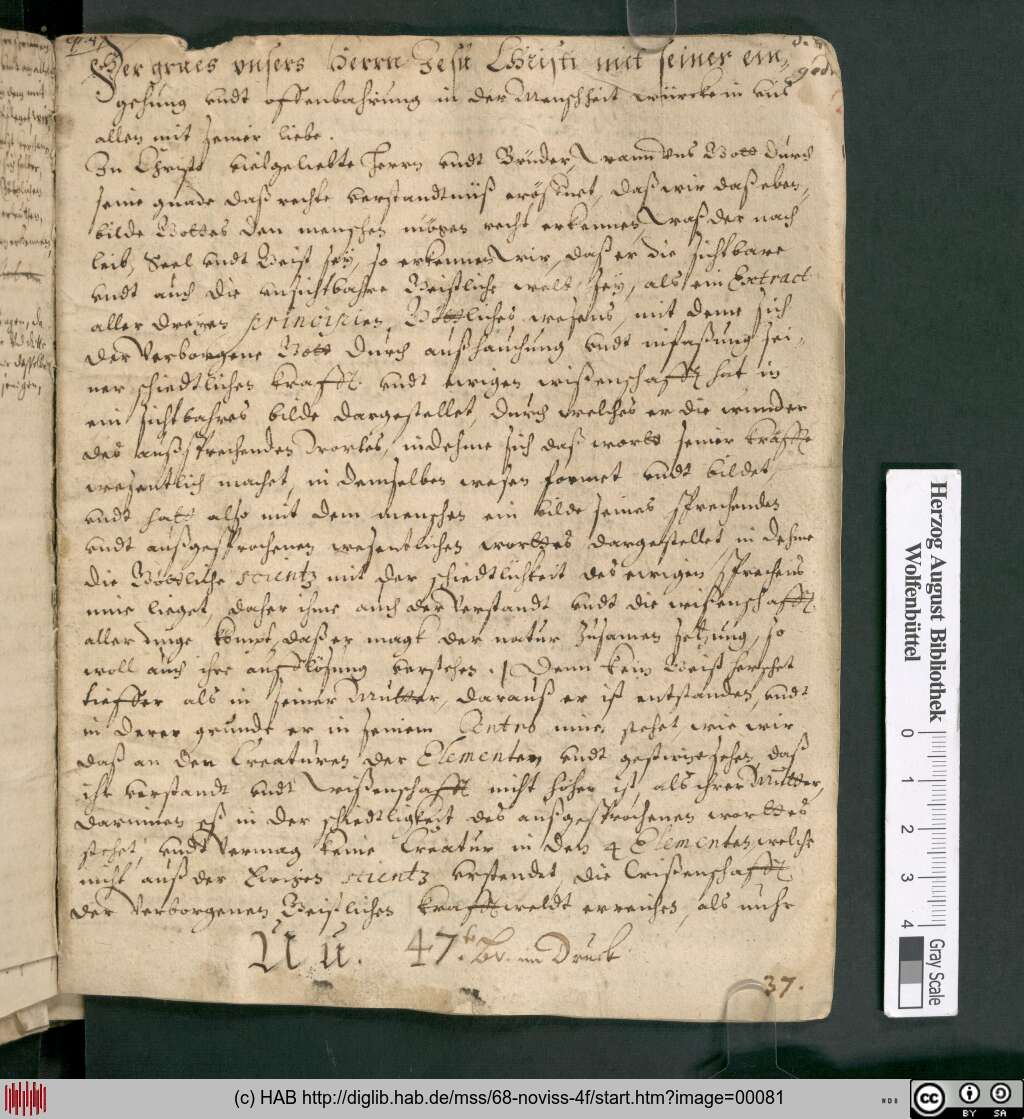 ep. 47
Der grues unsers Herrn Jesu Christi mit seiner ein,
gehung undt offenbahrung in der Menschheit würcke in uns
allen mit seiner liebe.
In Christo vielgeliebte Herrn undt Brüder, wann uns Gott durch
seine gnade daß rechte verstandtnüß eröffnet, daß wir daß eben,
bilde Gottes den menschen mögen recht erkennen, waß der nach
leib, Seel undt Geist sey, so erkennen wir, daß er die sichtbare
undt auch die unsichtbahre Geistliche welt sey, als ein Extract
aller dreyen principien Göttliches wesens, mit deme sich
der Verborgene Gott durch außhauchung undt infaßung sei,
ner schiedlichen krafft undt ewigen wißenschafft hat in
ein sichtbahres bilde dargestellet, durch welches er die wunder
des außsprechenden wortes, indehme sich daß wortt seiner kräffte
wesentlich machet, in demselben wesen formet undt bildet
undt hatt also mit dem menschen ein bilde seines sprechenden
undt außgesprochenen wesentlichen worttes dargestellet, in dehme
die Göttliche scientz mit der schiedlichkeit des ewigen Sprechens
inne lieget, daher ihme auch der Verstandt undt die wißenschafft
aller dinge kömpt, daß er magk der natur zusamen setzung, so
woll auch ihre aufflösung verstehen. Denn kein Geist forschet
tieffer als in seiner Mutter, darauß er ist entstanden, undt
in derer grunde er in seinem Centro inne stehet, wie wir
daß an den Creaturen der Elementen undt gestirne sehen, daß
ihr verstandt undt wißenschafft nicht höher ist, als ihrer Mutter,
darinnen eß in der schiedligkeit des außgesprochenen worttes
stehet, undt Vermag keine Creatur in den 4 Elementen, welche
nicht auß der Ewigen scientz urstendet, die Wißenschafft
der Verborgenen Geistlichen krafft weldt erreichen, als nuhr
U u. 47. Br. im Druck
37.
Herzog August Bibliothek
Wolfenbüttel
0 1 2 3 4
Gray Scale
(c) HAB http://diglib.hab.de/mss/68-noviss-4f/start.htm?image=00081
cc BY SA